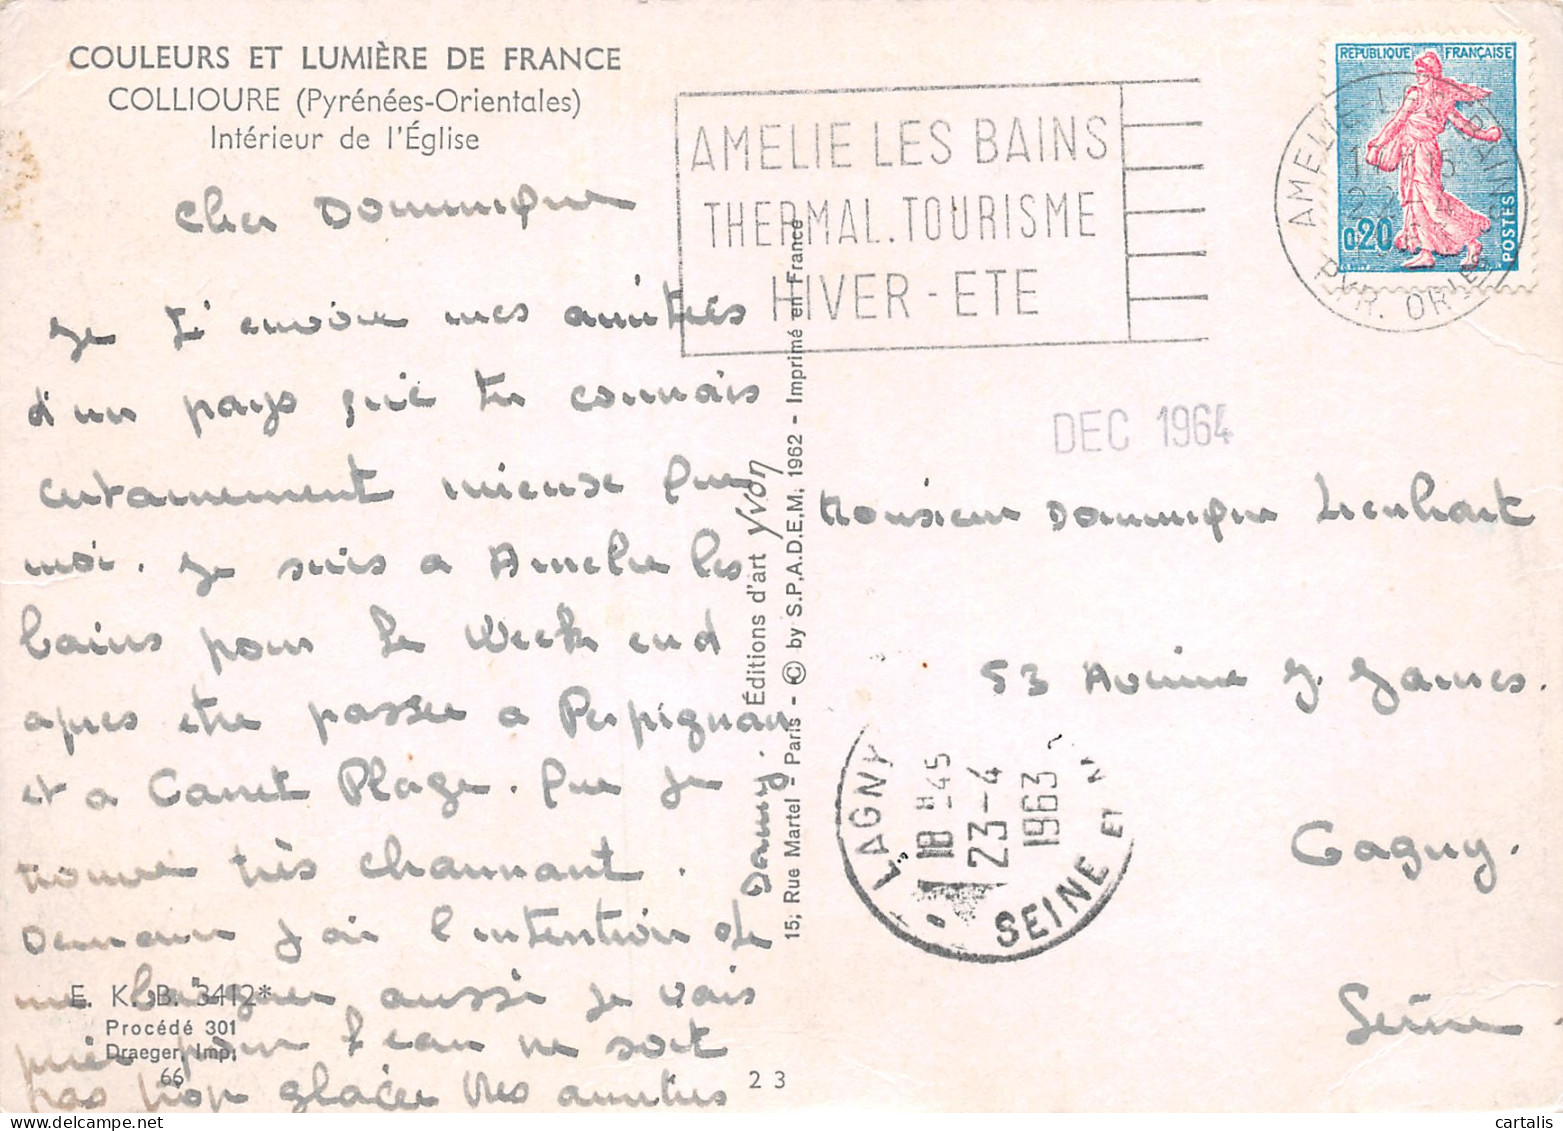 COULEURS ET LUMIÈRE DE FRANCE
COLLIOURE (Pyrénées-Orientales)
Intérieur de l'Église
Cher Dominique
Je t'envoie mes amitiés
d'un pays que tu connais
certainement mieux que
moi. Je suis a Amelie les
bains pour le Week end
apres etre passée a Perpignan
et a Canet Plage. Que je
trouve très charmant.
Demain j'ai l'intention de
me baigner aussi je vais
prier pour l'eau ne soit
pas trop glacée Mes amities
Dany.
E. K. B. 3412*
Procédé 301
Draeger, Imp.
66
23
15, Rue Martel - Paris - © by S.P.A.D.E.M. 1962 - Imprimé en France
Éditions d'art Yvon
AMELIE LES BAINS
THERMAL. TOURISME
HIVER - ETE
REPUBLIQUE FRANÇAISE
0,20
POSTES
AMELIE-L BAINS
PYR. ORIE
DEC 1964
Monsieur Dominique Lienhart
53 Avenue J. James.
Gagny.
Seine
LAGNY
18 H 45
23-4
1963
SEINE ET M
cartalis